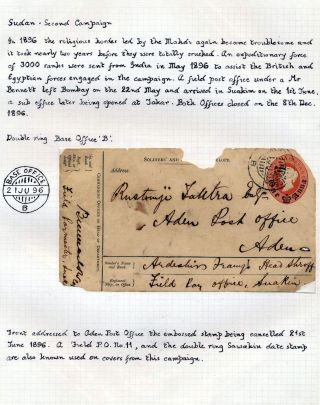 Sudan - Second Campaign
In 1896 the religious hordes led by the Mahdi's again became troublesome and
it took nearly two years before they were totally crushed. An expeditionary force
of 3000 ranks were sent from India in May 1896 to assist the British and
Egyptian forces engaged in the campaign. A field post office under a Mr
Bennett left Bombay on the 22nd May and arrived in Suakim on the 1st June,
a sub office later being opened at Tokar. Both Offices closed on the 8th Dec.
1896.
Double ring Base Office 'B'.
BASE OFFICE
21 JU 96
B
SOLDIERS' AND
ADDRESS.
Esq
Aden Post Office
Aden
Head Shroff
Field Pay office, Suakin
Front addressed to Aden Post Office the embossed stamp being cancelled 21st
June 1896. A Field P.O. No.11, and the double ring Sawakin date stamp
are also known used on covers from this campaign.